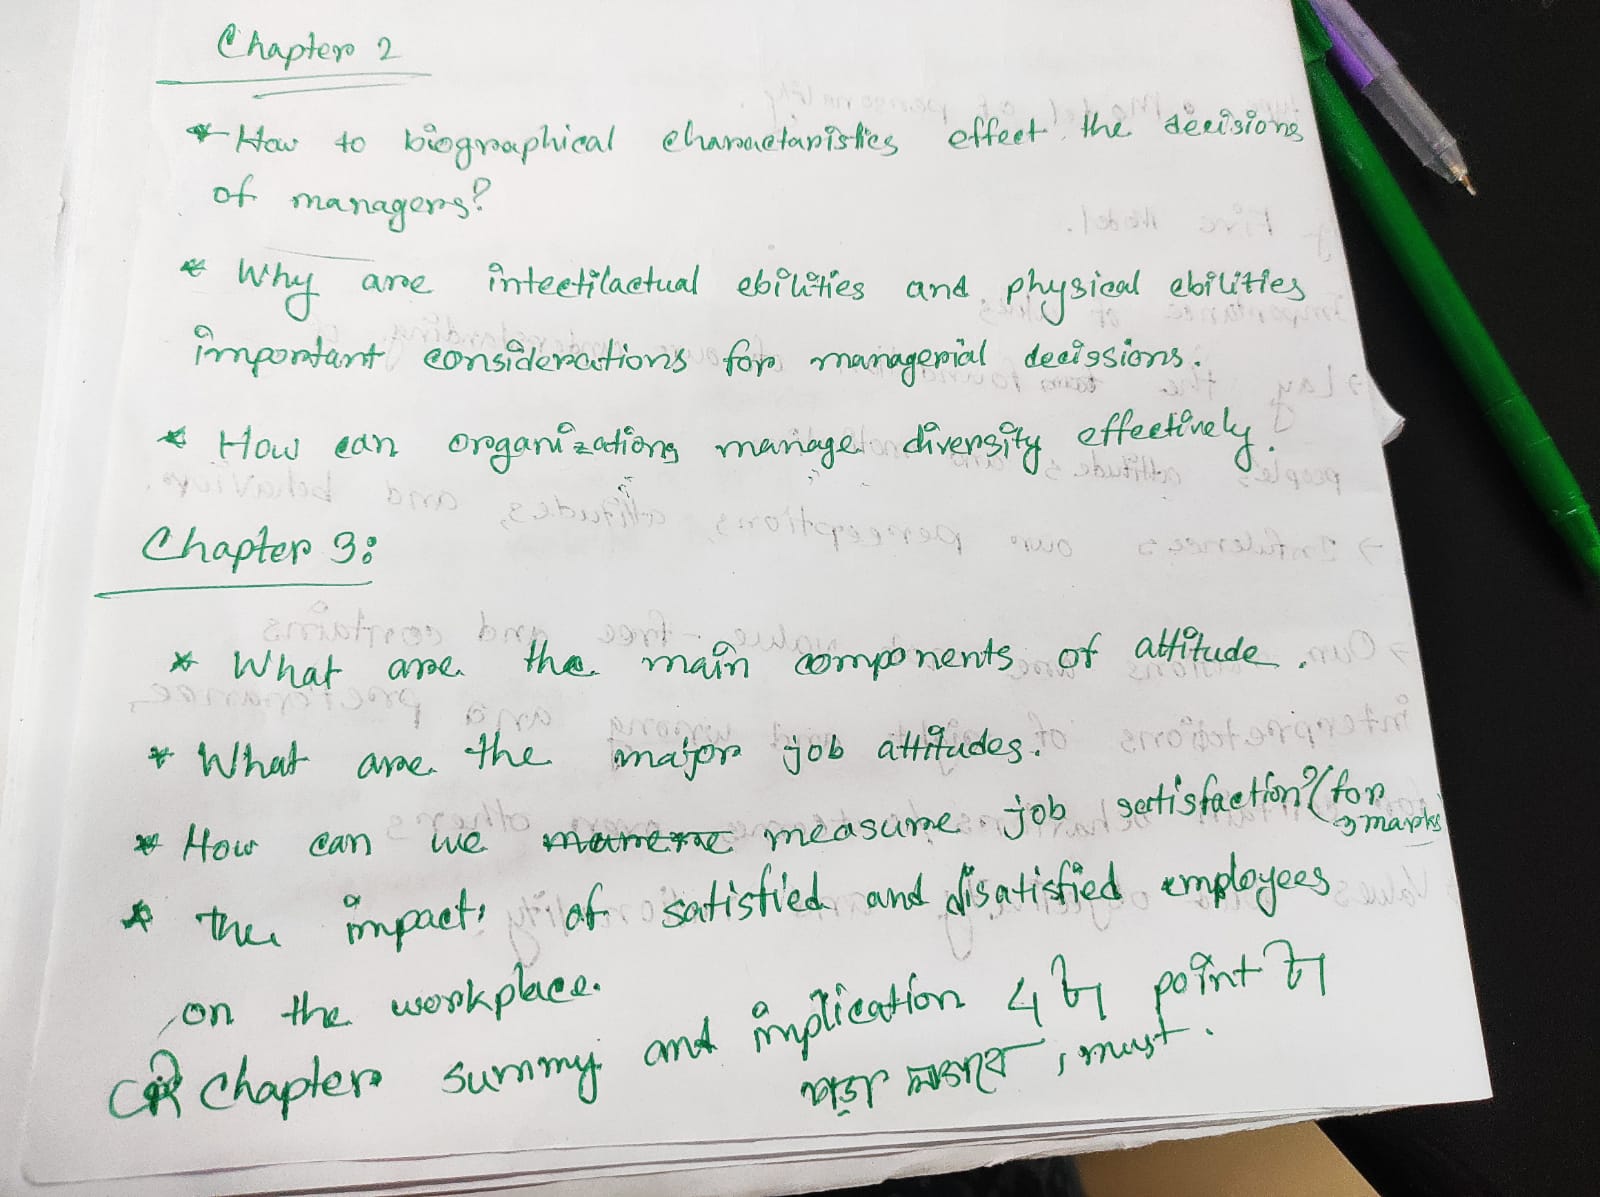 Chapter 2
* How to biographical charactaristics effect the decisions
of managers?
* Why are intectilactual ebilities and physical ebilities
important considerations for managerial decissions.
* How can organizations manage diversity effectively.
Chapter 3:
* What are the main components of attitude.
* What are the major job attitudes.
* How can we measure job satisfaction? (for
3 marks)
* the impact of satisfied and disatisfied employees
on the workplace.
chapter summy and implication 4 টা point টা
পড়া লাগবে, must.